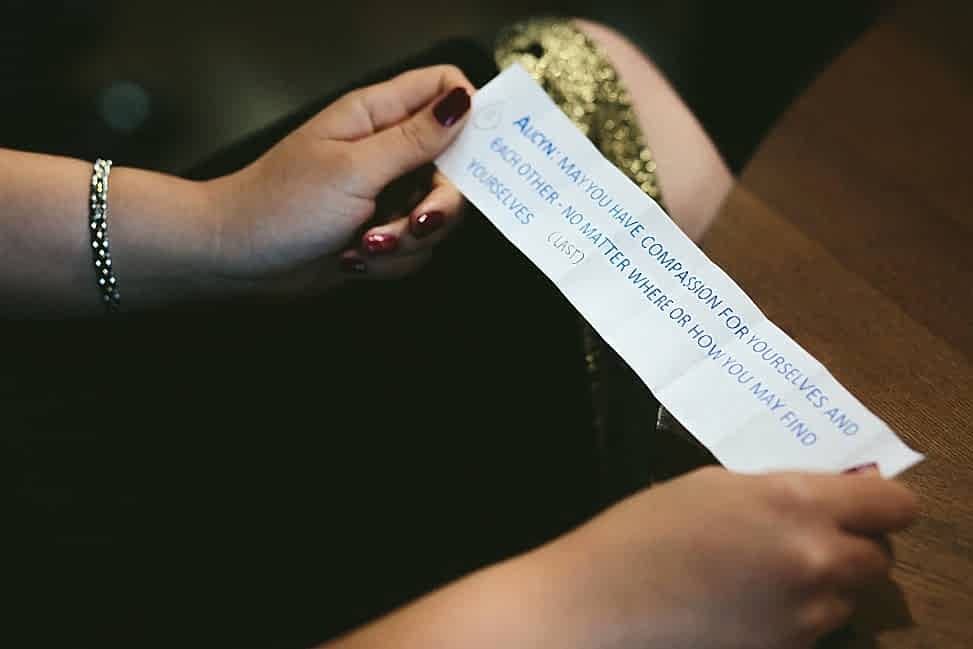 ALICYN: MAY YOU HAVE COMPASSION FOR YOURSELVES AND
EACH OTHER - NO MATTER WHERE OR HOW YOU MAY FIND
YOURSELVES
(LAST)